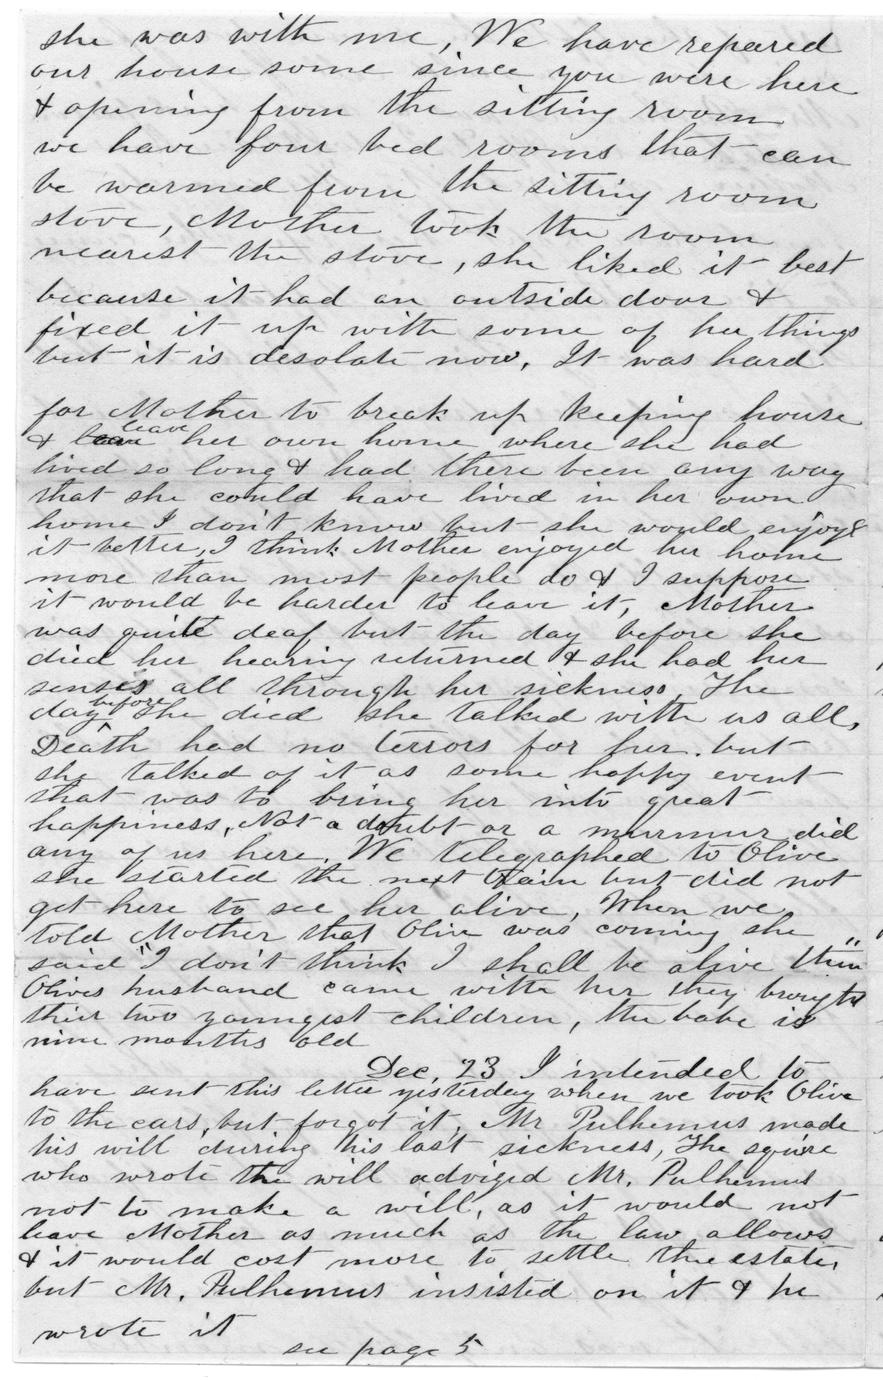 she was with me, We have repared
our house some since you were here
& opening from the sitting room
we have four bed rooms that can
be warmed from the sitting room
stove, Mother took the room
nearest the stove, she liked it best
because it had an outside door &
fixed it up with some of her things
but it is desolate now. It was hard
for Mother to break up keeping house
& leave her own home where she had
lived so long & had there been any way
that she could have lived in her own
home I don't know but she would enjoyed
it better, I think Mother enjoyed her home
more than most people do & I suppose
it would be harder to leave it, Mother
was quite deaf but the day before she
died her hearing returned & she had her
senses all through her sickness, The
day before she died she talked with us all,
Death had no terrors for her. but
she talked of it as some happy event
that was to bring her into great
happiness, Not a doubt or a murmur did
any of us here. We telegraphed to Olive
she started the next train but did not
get here to see her alive, When we
told Mother that Olive was coming she
said "I don't think I shall be alive then"
Olives husband came with her they brought
thier two youngest children, the babe is
nine months old
Dec, 23 I intended to
have sent this letter yesterday when we took Olive
to the cars, but forgot it. Mr Pulhemus made
his will during his last sickness, The squire
who wrote the will adviged Mr. Pulhemus
not to make a will, as it would not
leave Mother as much as the law allows
& it would cost more to settle the estate,
but Mr. Pulhemus insisted on it & he
wrote it
see page 5